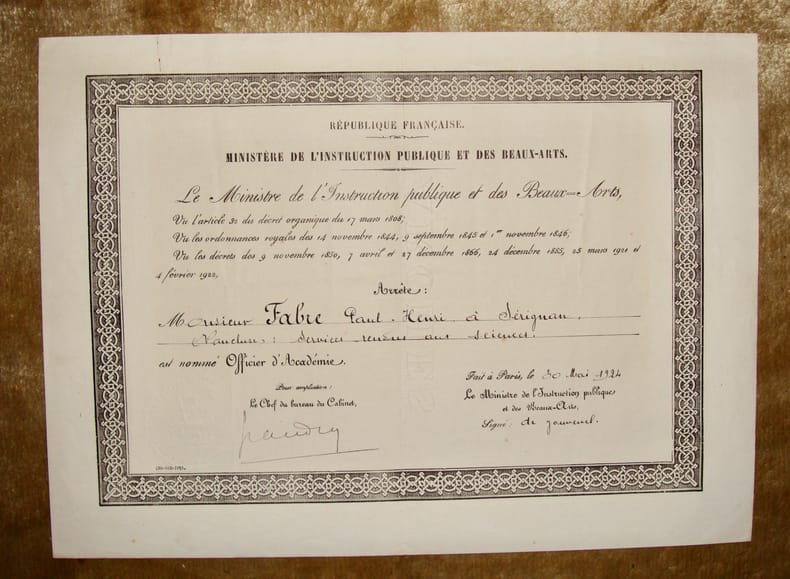 RÉPUBLIQUE FRANÇAISE.
MINISTÈRE DE L'INSTRUCTION PUBLIQUE ET DES BEAUX-ARTS.
Le Ministre de l'Instruction publique et des Beaux-Arts,
Vu l'article 32 du décret organique du 17 mars 1808;
Vu les ordonnances royales des 14 novembre 1844, 9 septembre 1845 et 1er novembre 1846;
Vu les décrets des 9 novembre 1850, 7 avril et 27 décembre 1866, 24 décembre 1885, 25 mars 1921 et
4 février 1922,
Arrête:
Monsieur Fabre Paul-Henri à Sérignan
(Vaucluse: Services rendus aux sciences.
est nommé Officier d'Académie.
Fait à Paris, le 30 Mai 1924
Pour ampliation:
Le Chef du bureau du Cabinet,
Le Ministre de l'Instruction publique
et des Beaux-Arts,
Signé: de Jouvenel.